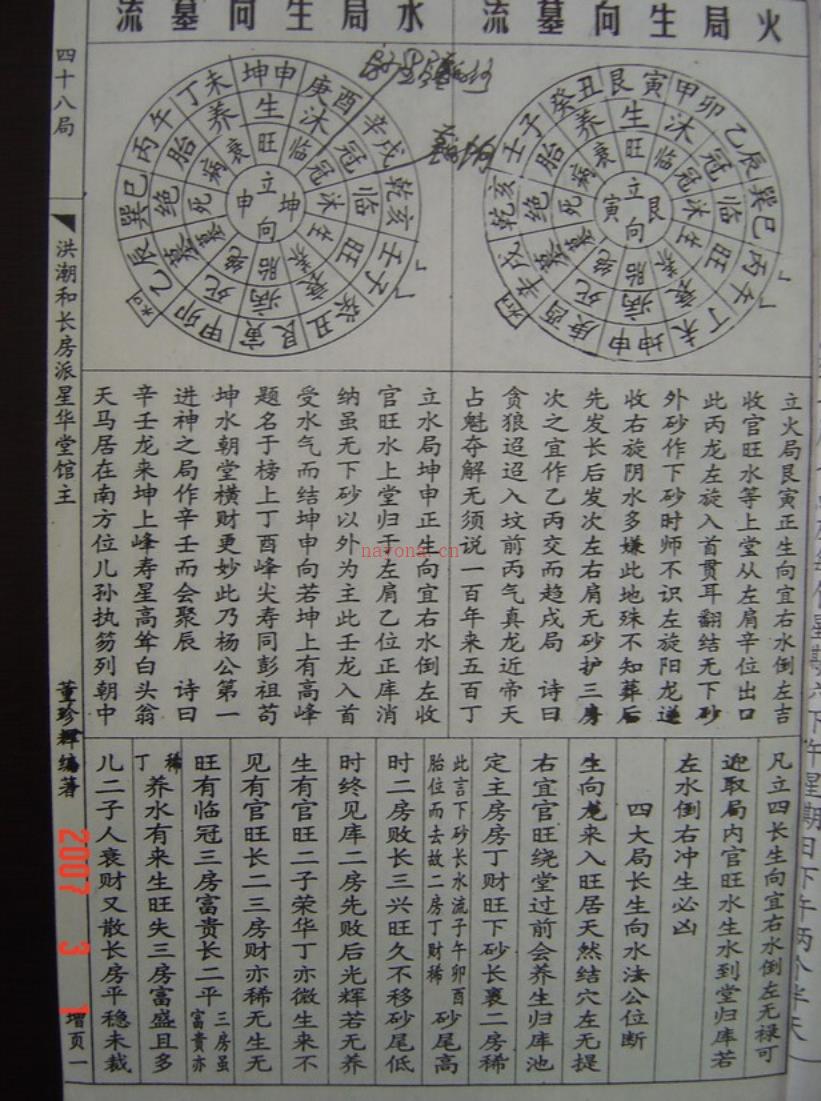 火局生向墓流
艮寅 甲卯 乙辰 巽巳 丙午 丁未 坤申 庚酉 辛戌 乾亥 壬子 癸丑
生 沐 冠 临 旺 衰 病 死 墓 绝 胎 养
旺 临 冠 沐 生 养 胎 绝 墓 死 病 衰
立向 艮寅
水局生向墓流
坤申 庚酉 辛戌 乾亥 壬子 癸丑 艮寅 甲卯 乙辰 巽巳 丙午 丁未
生 沐 冠 临 旺 衰 病 死 墓 绝 胎 养
旺 临 冠 沐 生 养 胎 绝 墓 死 病 衰
立向 坤申
立火局艮寅正生向宜右水倒左吉
收官旺水等上堂从左肩辛位出口
此丙龙左旋入首贯耳翻结无下砂
外砂作下砂时师不识左旋阳龙逆
收右旋阴水多嫌此地殊不知葬后
先发长后发次左右肩无砂护三房
次之宜作乙丙交而趋戌局 诗曰
贪狼迢迢入坟前丙气真龙近帝天
占魁夺解无须说一百年来五百丁
立水局坤申正生向宜右水倒左收
官旺水上堂归于左肩乙位正库消
纳虽无下砂以外为主此壬龙入首
受水气而结坤申向若坤上有高峰
题名于榜上丁酉峰尖寿同彭祖苟
坤水朝堂横财更妙此乃杨公第一
进神之局作辛壬而会聚辰 诗曰
辛壬龙来坤上峰寿星高耸白头翁
天马居在南方位儿孙执笏列朝中
凡立四长生向宜右水倒左无禄可
迎取局内官旺水生水到堂归库若
左水倒右冲生必凶
四大局长生向水法公位断
生向龙来入旺居天然结穴左无提
右宜官旺绕堂过前会养生归库池
定主房房丁财旺下砂长裹二房稀
此言下砂长水流子午卯酉
胎位而去故二房丁财稀
砂尾高
时二房败长三兴旺久不移砂尾低
时终见库二房先败后光辉若无养
生有官旺二子荣华丁亦微生来不
见有官旺长二三房财亦稀无生无
旺有临冠三房富贵长二平
三房虽
富贵亦
稀
丁
养水有来生旺失三房富盛且多
儿二子人衰财又散长房平稳未裁
四十八局
洪潮和长房派星华堂馆主
董珍辉编著
增页一
nayona.cn
2007 3 1